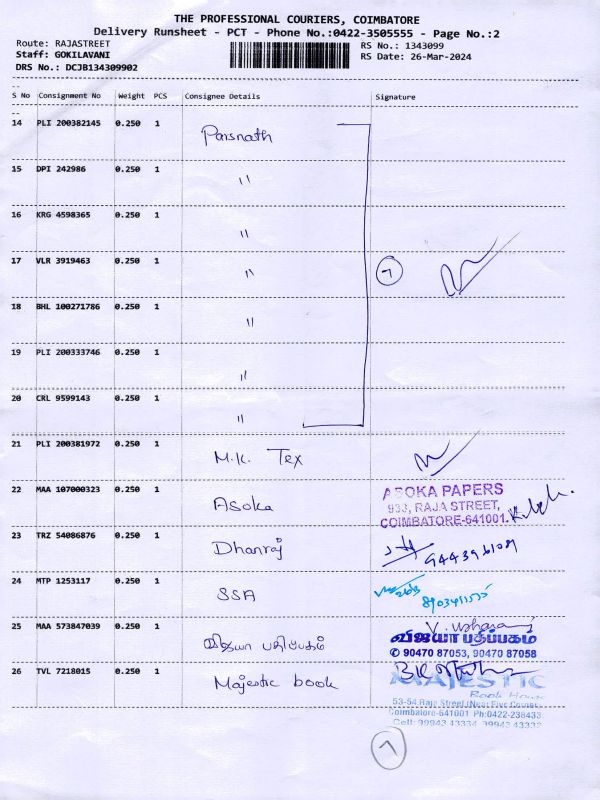 THE PROFESSIONAL COURIERS, COIMBATORE
Delivery Runsheet - PCT - Phone No.:0422-3505555 - Page No.:2
Route: RAJASTREET RS No.: 1343099
Staff: GOKILAVANI RS Date: 26-Mar-2024
DRS No.: DCJB134309902
S No Consignment No Weight PCS Consignee Details Signature
14 PLI 200382145 0.250 1 Parsnath
15 DPI 242986 0.250 1 "
16 KRG 4598365 0.250 1 "
17 VLR 3919463 0.250 1 " 7
18 BHL 100271786 0.250 1 "
19 PLI 200333746 0.250 1 "
20 CRL 9599143 0.250 1 "
21 PLI 200381972 0.250 1 M.K. Tex
22 MAA 107000323 0.250 1 Asoka
ASOKA PAPERS
933, RAJA STREET,
COIMBATORE-641001.
23 TRZ 54086876 0.250 1 Dhanraj
24 MTP 1253117 0.250 1 SSA
25 MAA 573847039 0.250 1 விஜயா பதிப்பகம்
விஜயா பதிப்பகம்
✆ 90470 87053, 90470 87058
26 TVL 7218015 0.250 1 Majestic book
MAJESTIC
Book House
53-54 Raja Street (Near Five Corner
Coimbatore-641001 Ph:0422-238433
Cell: 99943 43334, 99943 43332
7